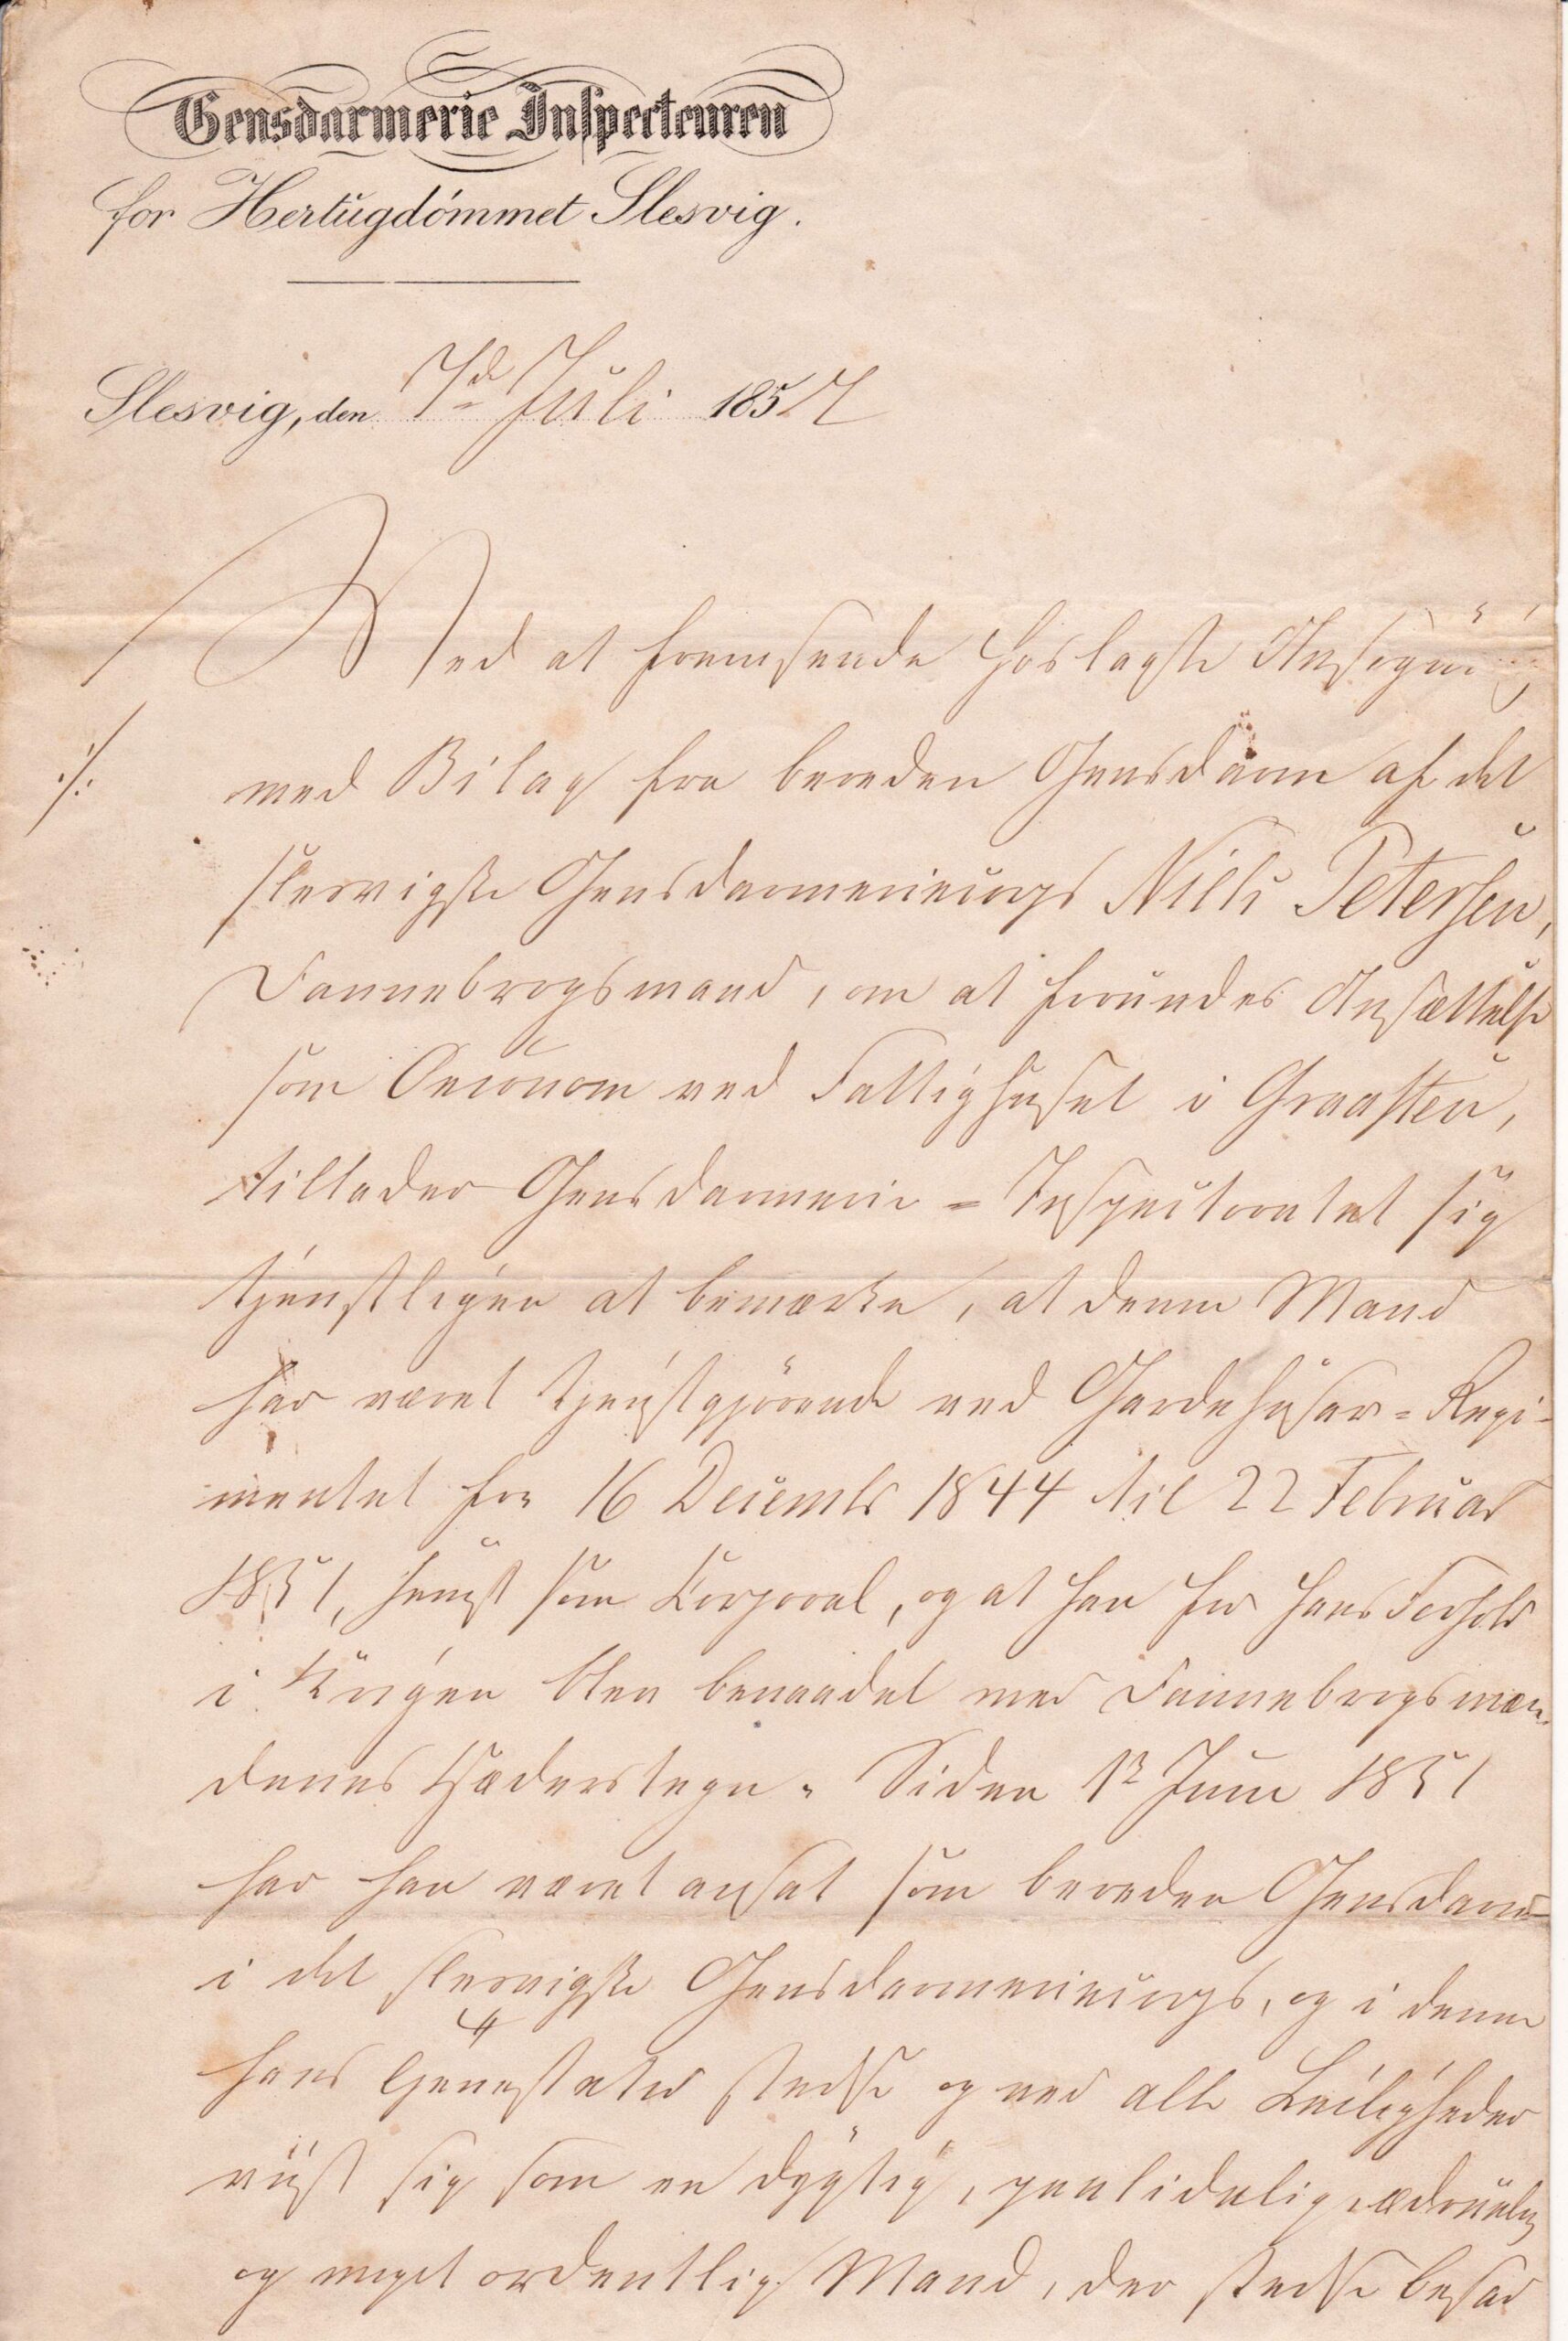 Gensdarmerie Inspecteuren
for Hertugdómmet Slesvig.
Slesvig, den 7de Juli 1857
Ved at fremsende hoslagte Ansøgning
./. med Bilag fra bereden Gensdarm af det
slesvigske Gensdarmeriecorps Niels Petersen,
Dannebrogsmand, om at forundes Ansættelse
som Oeconom ved Fattighuset i Graasten,
tillader Gensdarmerie=Inspectoratet sig
tjenstligen at bemærke, at denne Mand
har været tjenstgjörende ved Gardehusar=Regi-
mentet fra 16 Decembr 1844 til 22 Februar
1851, senest som Korporal, og at han for hans Forhold
i Krigen blev benaadet med Dannebrogsmæn-
denes Hæderstegn. Siden 1e Juni 1851
har han været ansat som bereden Gensdarm
i det slesvigske Gensdarmeriecorps, og i denne
hans Tjeneste stedse og ved alle Leiligheder
viist sig som en dygtig, paalidelig, ædruelig
og meget ordentlig Mand, der stedse besad